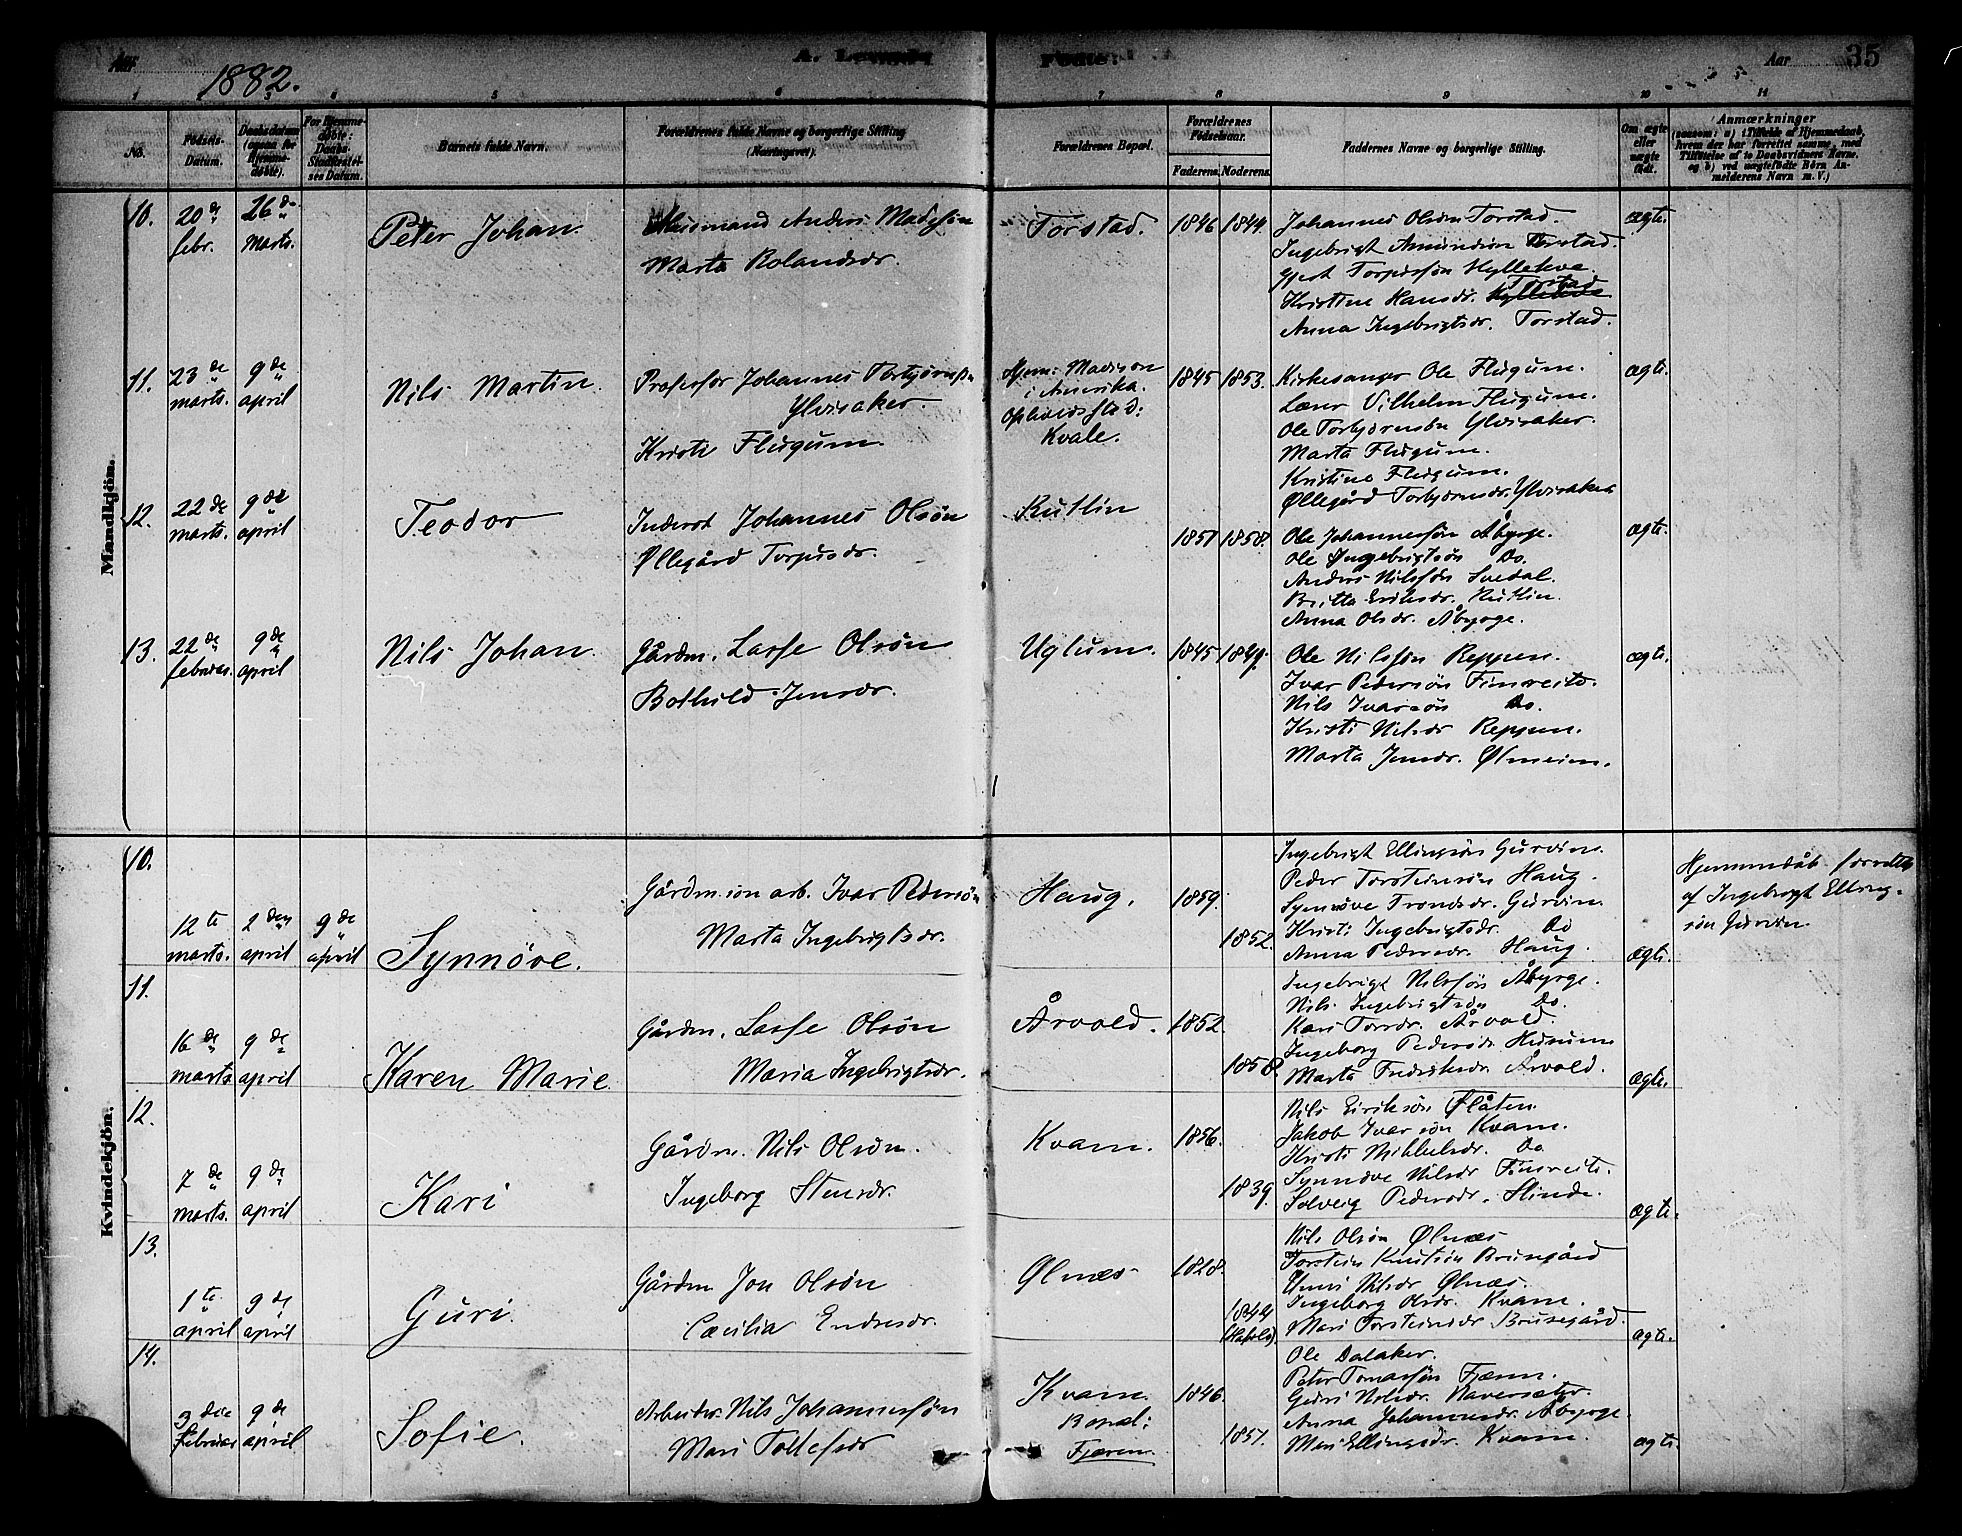 Aar 1882.
A. Levende
Fødte:
Aar
35
1 3 4 5 6 7 8 9 10 11
No.
Fødsels-Datum.
Daabsdatum (ogsaa for Hjemmedøbte).
For Hjemmedøbte: Daabs-Stadfæstelses Datum.
Barnets fulde Navn.
Forældrenes fulde Navne og borgerlige Stilling (Næringsvei).
Forældrenes Bopæl.
Forældrenes Fødselsaar.
Faderens. Moderens.
Faddernes Navne og borgerlige Stilling.
Om ægte eller uægte født.
Anmærkninger
(saasom: a) i Tilfælde af Hjemmedaab, hvem der har forrettet samme, med Tilføielse af to Daabsvidners Navne, og b) ved uægtefødte Børn Anmelderens Navn m. V.)
Mandkjön.
10. 20de febr. 26de marts. Peter Johan
Husmand Anders Madssøn
Marta Rolandsdr.
Torstad. 1846 1844.
Johannes Olsøn Torstad.
Ingebrigt Amundsøn Torstad.
Gjest Torpissøn Hyllekve.
Torstad
Kristine Hansdr. Hyllekve
Anna Ingebrigtsdr. Torstad.
ægte.
11. 23de marts. 9de april Nils Martin.
Professor Johannes Torbjørnssøn
Ylvisaker.
Kristi Flugum.
Hjem: Madison
i Amerika.
Opholdssted:
Kvale.
1845 1853.
Kirkesanger Ole Flugum.
Lærer Vilhelm Flugum.
Ole Torbjørnsøn Ylvisaker.
Marta Flugum.
Kristine Flugum.
Øllegård Torbjørnsdr. Ylvisaker
ægte.
12. 22de marts. 9de april Teodor
Inderst Johannes Olsøn
Øllegård Torpisdr.
Rutlin
1857 1858.
Ole Johannessøn Åbyrge.
Ole Ingebrigtsøn Do.
Anders Nilssøn Svedal.
Britta Eriksdr. Rutlin.
Anna Olsdr. Åbyrge.
ægte.
13. 22de februar. 9de april Nils Johan.
Gårdm. Lasse Olsøn
Bothild Jensdr.
Uglum. 1845 1849.
Ole Nilssøn Reppen.
Ivar Pedersøn Fimreite.
Nils Ivarsøn Do.
Kristi Nilsdr Reppen.
Marta Jensdr. Ølmeim.
ægte.
Kvindekjön.
10. 12te marts. 2den april 9de april Synnöve.
Gårdm.søn arb. Ivar Pedersøn
Marta Ingebrigtsdr.
Haug. 1859. 1852.
Ingebrigt Ellingsøn Gurvin.
Peder Torsteinsøn Haug.
Synnøve Trondsdr. Gurvin.
Kristi Ingebrigtsdr. Do
Anna Pedersdr. Haug.
ægte.
Hjemmedåb forrettet
af Ingebrigt Elling-
søn Gurvin.
11. 16de marts 9de april Karen Marie
Gårdm. Lasse Olsøn
Maria Ingebrigtsdr.
Årvold. 1852. 1858.
Ingebrigt Nilssøn Åbyrge.
Nils Ingebrigtsøn Do.
Kari Torsdr. Årvold.
Ingeborg Pedersdr. Husum
Marta Fredriksdr. Årvold.
ægte.
12. 7de marts. 9de april Kari
Gårdm. Nils Olsøn.
Ingeborg Stensdr.
Kvam. 1856. 1839.
Nils Eiriksøn Flåten.
Jakob Ivarsøn Kvam.
Kristi Mikkelsdr. Do
Synnøve Nilsdr Fimreite.
Solveig Pedersdr. Slinde.
ægte.
13. 1te april 9de april Guri.
Gårdm Jon Olsøn
Cæcilia Endresdr.
Ølnæs 1828. 1844
Nils Olsøn Ølnæs
Torstein Knutsøn Brusegård
Unni Nilsdr Ølnæs.
Ingeborg Olsdr. Kvam.
Mari Torsteinsdr Brusegård.
ægte.
14. 3die februar 9de april Sofie.
Arbeider. Nils Johannessøn
Mari Tollefsdr
Kvam.
Bopæl:
Fjæren.
1846. 1857.
Ole Dalaker.
Peter Tomassøn Fjærn.
Guðri Nilsdr. Naversæter.
Anna Johannesdr. Åbyrge.
Mari Ellingsdr. Kvam.
ægte.